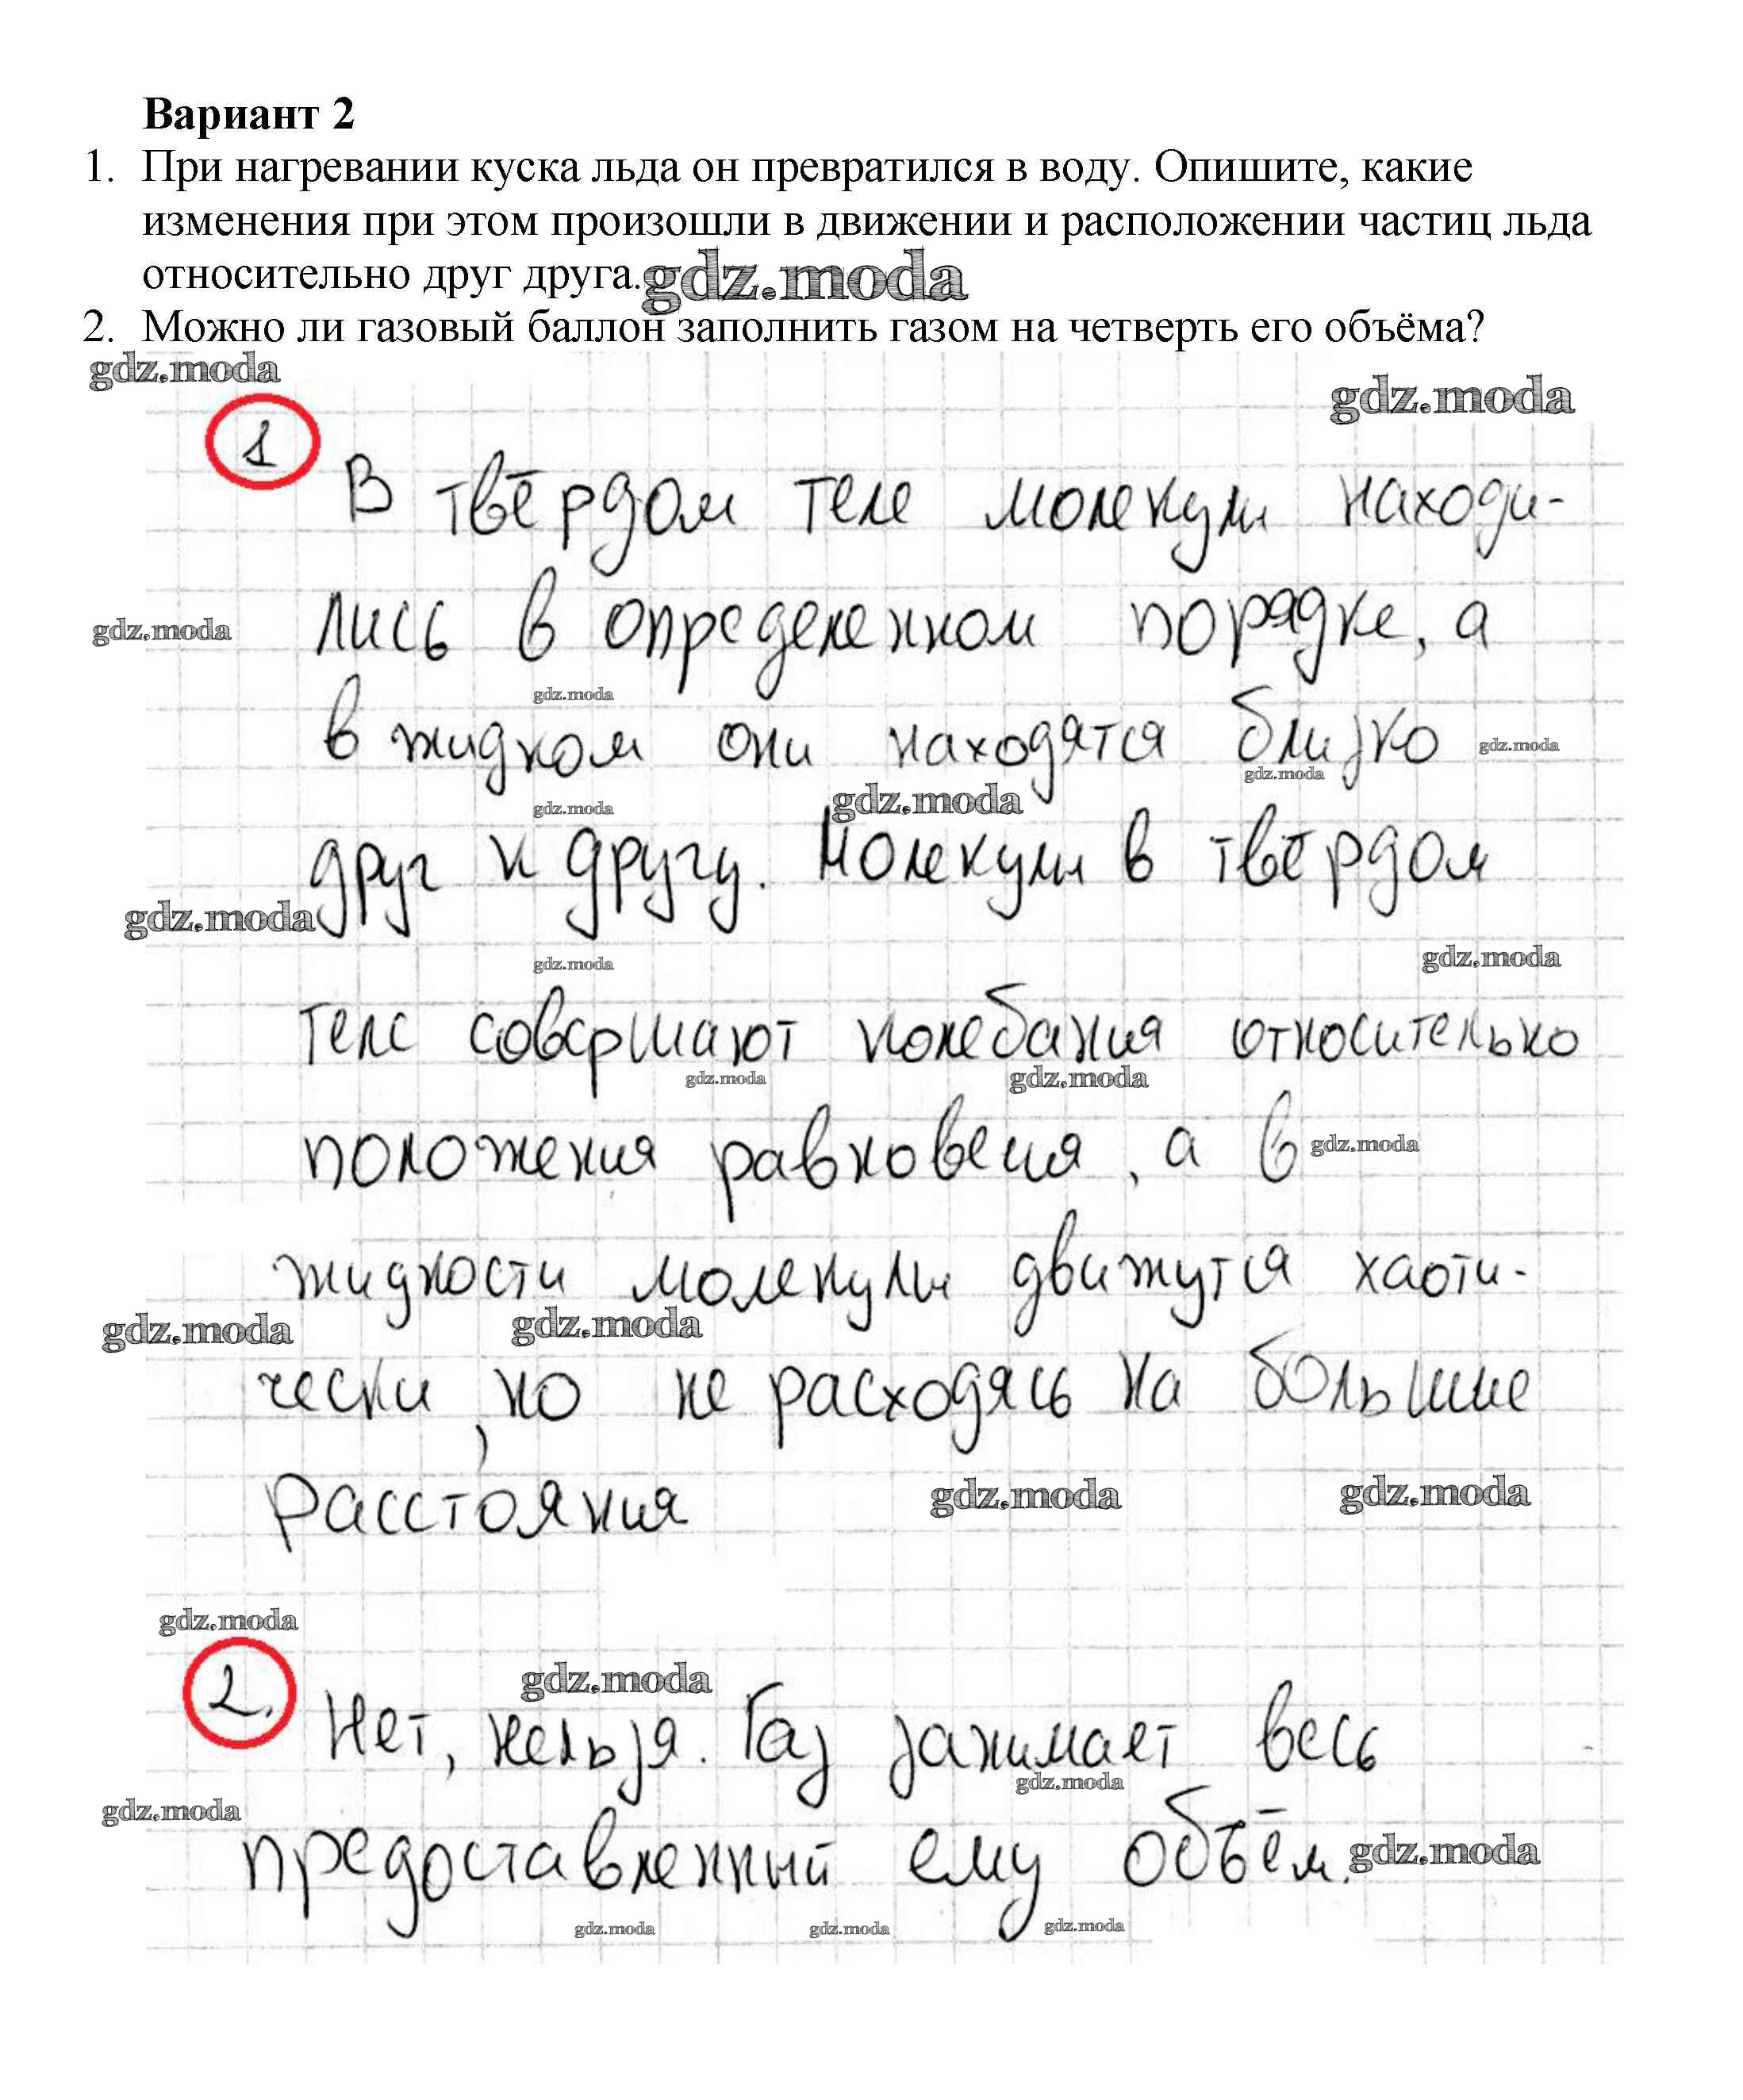 Вариант 2
1. При нагревании куска льда он превратился в воду. Опишите, какие
изменения при этом произошли в движении и расположении частиц льда
относительно друг друга. gdz.moda
2. Можно ли газовый баллон заполнить газом на четверть его объёма?
gdz.moda
gdz.moda
1 В твёрдом теле молекулы находи-
gdz.moda лись в определенном порядке, а
gdz.moda
в жидком они находятся близко gdz.moda
gdz.moda
gdz.moda gdz.moda
друг к другу. Молекулы в твёрдом
gdz.moda
gdz.moda gdz.moda
теле совершают колебания относительно
gdz.moda gdz.moda
положения равновесия, а в gdz.moda
жидкости молекулы движутся хаоти-
gdz.moda gdz.moda
чески, но не расходясь на большие
расстояния gdz.moda gdz.moda
gdz.moda
gdz.moda
2. Нет, нельзя. Газ занимает весь
gdz.moda
gdz.moda
предоставленный ему объём. gdz.moda
gdz.moda gdz.moda gdz.moda